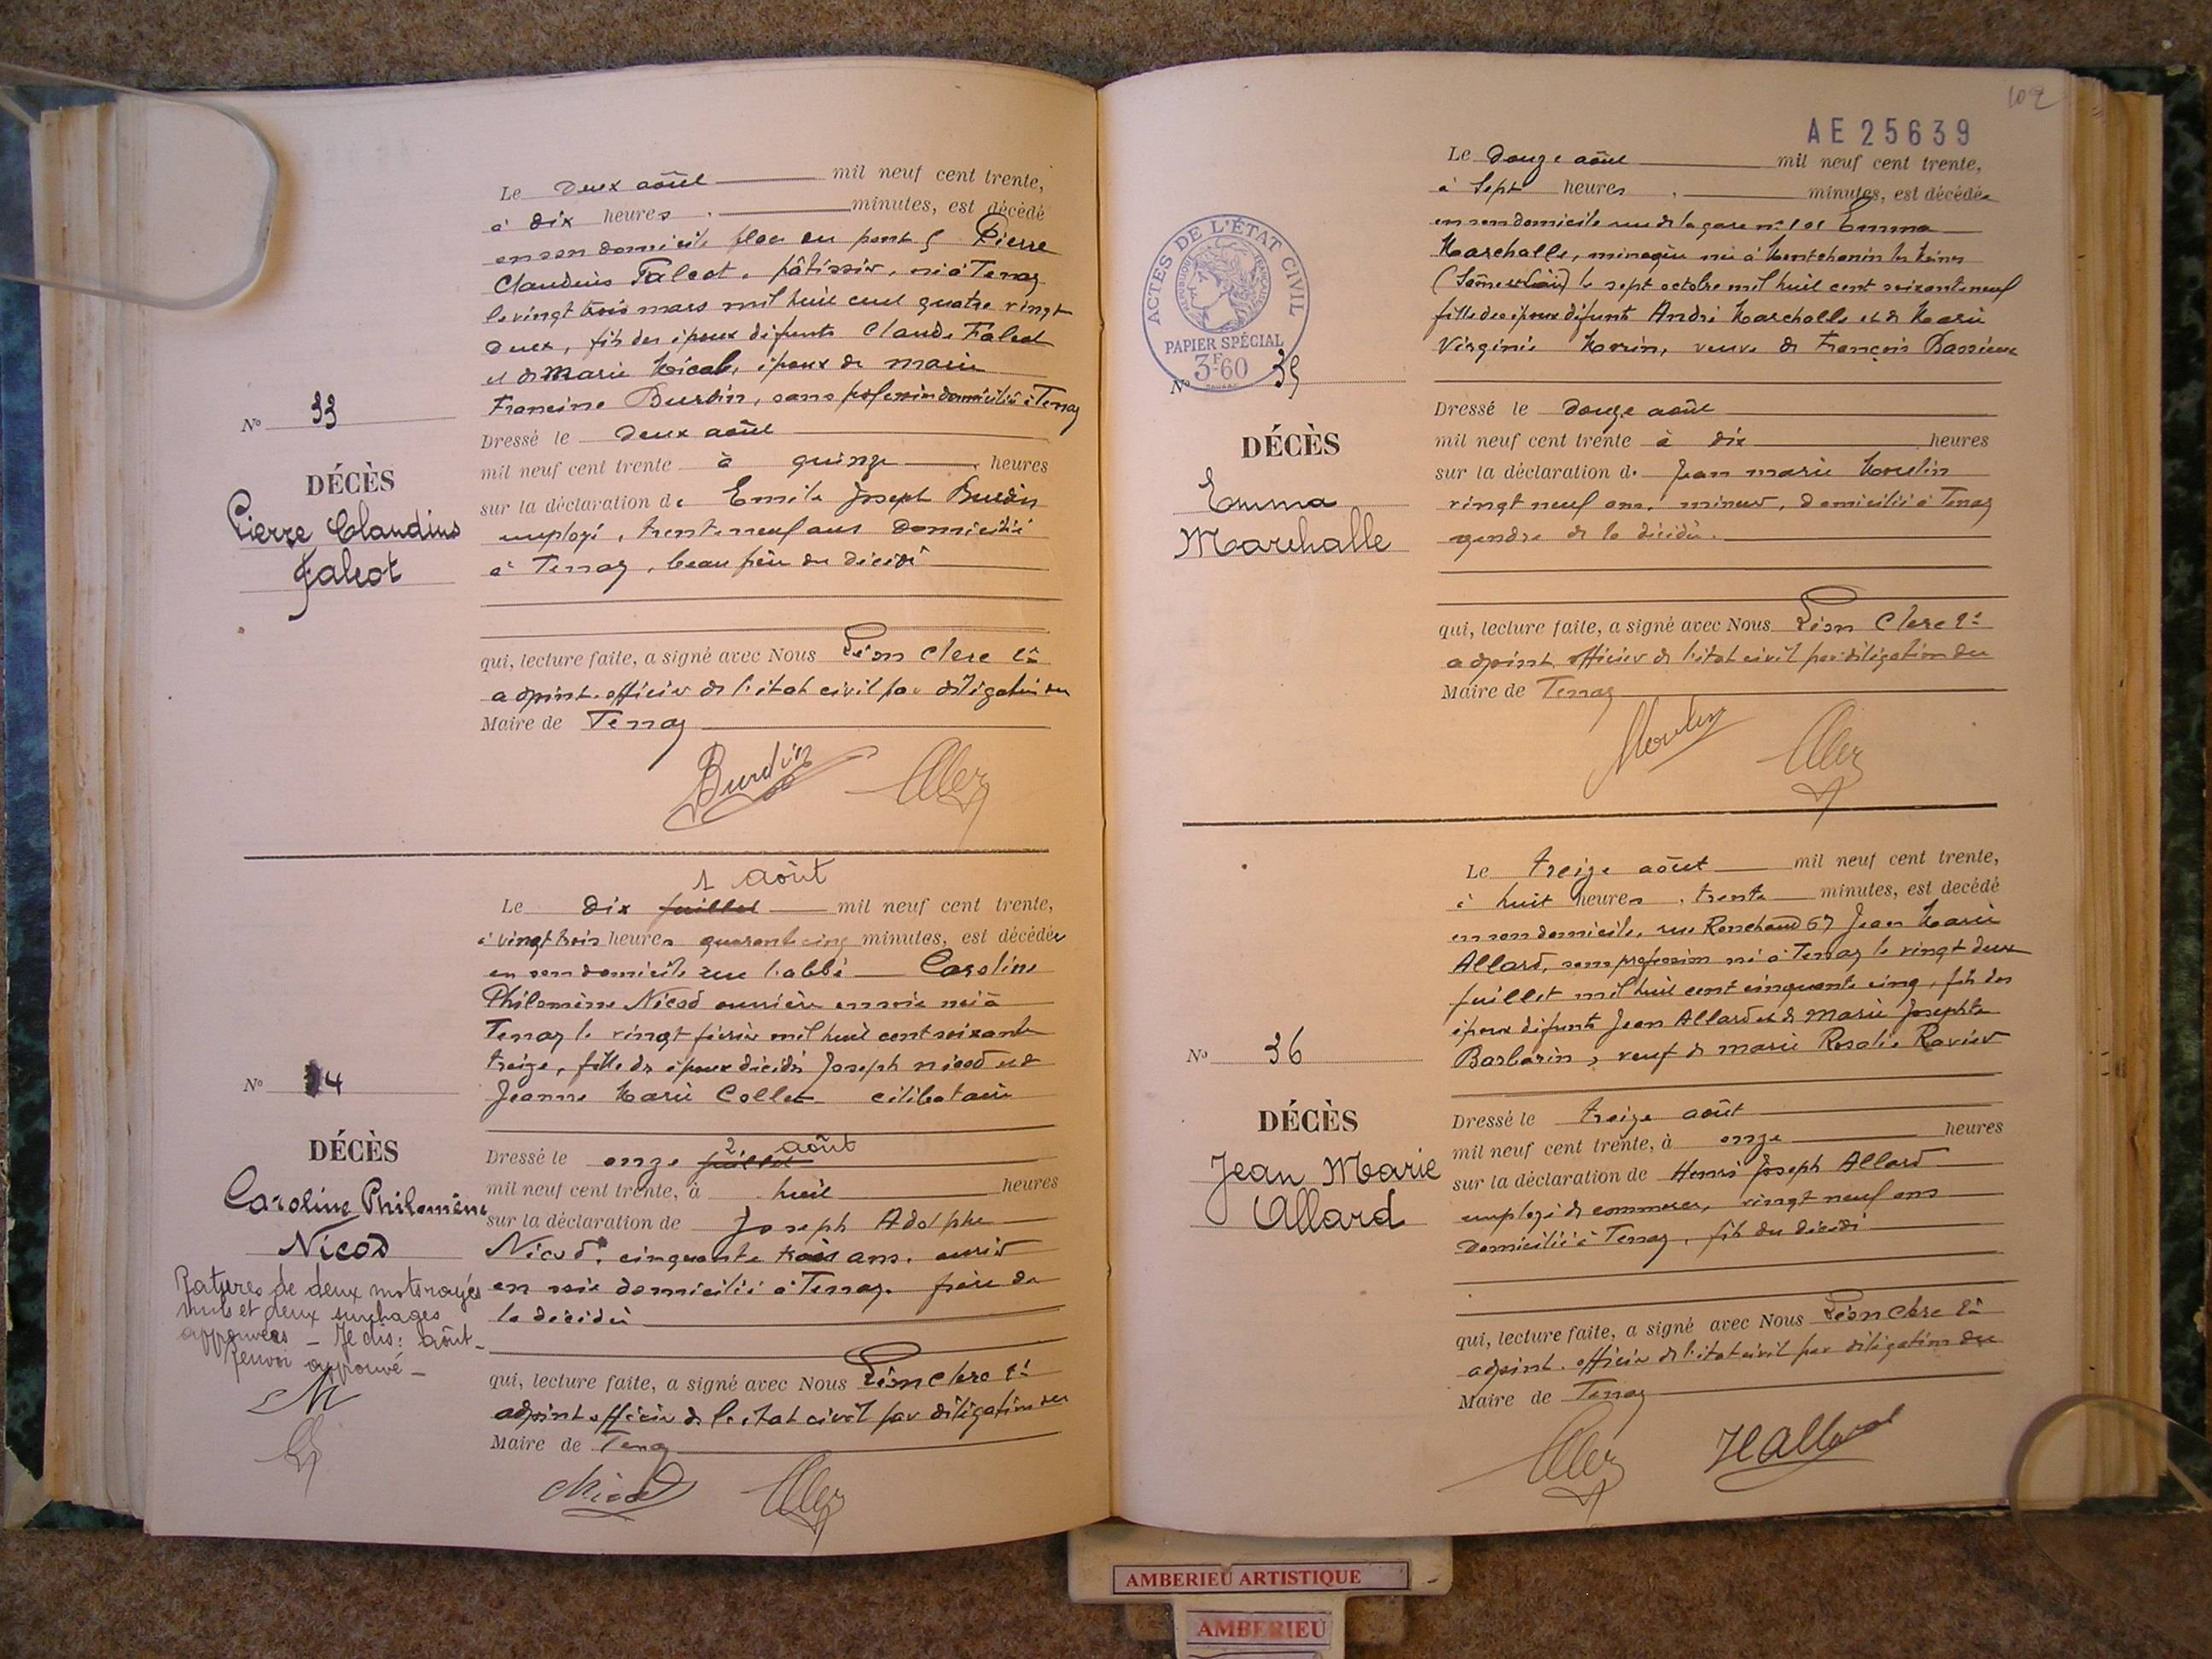 Le deux août mil neuf cent trente,
à dix heures minutes, est décédé
en son domicile place du pont 5 Pierre
Claudius Falcot, pâtissier, né à Tenay
le vingt trois mars mil huit cent quatre vingt
deux, fils des époux défunts Claude Falcot
et de Marie Nicod, époux de marie
Francine Burdin, sans profession domiciliée à Tenay
Dressé le deux août
mil neuf cent trente à quinze heures
sur la déclaration de Emile Joseph Burdin
employé, trente neuf ans domicilié
à Tenay, beau frère du décédé
qui, lecture faite, a signé avec Nous Léon Clerc 2e
adjoint officier de l'état civil par délégation du
Maire de Tenay
Burdin
N° 33
DÉCÈS
Pierre Claudius
Falcot
1 août
Le dix juillet mil neuf cent trente,
à vingt trois heures quarante cinq minutes, est décédée
en son domicile rue l'abbé Caroline
Philomène Nicod ouvrière en soie née à
Tenay le vingt février mil huit cent soixante
treize, fille de époux décédés Joseph nicod et de
Jeanne Marie Collet célibataire
2 août
Dressé le onze juillet
mil neuf cent trente, à huit heures
sur la déclaration de Joseph Adolphe
Nicod, cinquante trois ans, ouvrier
en soie domicilié à Tenay, frère de
la décédée
qui, lecture faite, a signé avec Nous Léon Clerc 2e
adjoint officier de l'état civil par délégation du
Maire de Tenay
Nicod
N° 34
DÉCÈS
Caroline Philomène
Nicod
Ratures de deux mots rayés
nuls et deux surchages
approuvées - Je dis: août -
Renvoi approuvé -
102
AE 25639
Le douze août mil neuf cent trente,
à sept heures minutes, est décédée
en son domicile rue de la gare n° 101 Emma
Marchalle, ménagère née à Montchanin les Mines
(Saône et Loire) le sept octobre mil huit cent soixante neuf
fille des époux défunts André Marchalle et de Marie
Virginie Morin, veuve de François Bassieux
Dressé le douze août
mil neuf cent trente à dix heures
sur la déclaration de Jean marie Moulin
vingt neuf ans, mineur, domicilié à Tenay
gendre de la décédée.
qui, lecture faite, a signé avec Nous Léon Clerc 2e
adjoint officier de l'état civil par délégation du
Maire de Tenay
Moulin
ACTES DE L'ÉTAT CIVIL
RÉPUBLIQUE FRANÇAISE
PAPIER SPÉCIAL
3F60
N° 35
DÉCÈS
Emma
Marchalle
Le treize août mil neuf cent trente,
à huit heures, trente minutes, est decédé
en son domicile, rue Renchaud 67 Jean Marie
Allard, sans profession né à Tenay le vingt deux
juillet mil huit cent cinquante cinq, fils des
époux défunts Jean Allard et de Marie Josephte
Barbarin, veuf de marie Rosalie Ravier
Dressé le treize août
mil neuf cent trente, à onze heures
sur la déclaration de Henri Joseph Allard
employé de commerce, vingt neuf ans
domicilié à Tenay, fils du décédé
qui, lecture faite, a signé avec Nous Léon Clerc 2e
adjoint officier de l'état civil par délégation du
Maire de Tenay
HAllard
N° 36
DÉCÈS
Jean Marie
Allard
AMBERIEU ARTISTIQUE
AMBERIEU